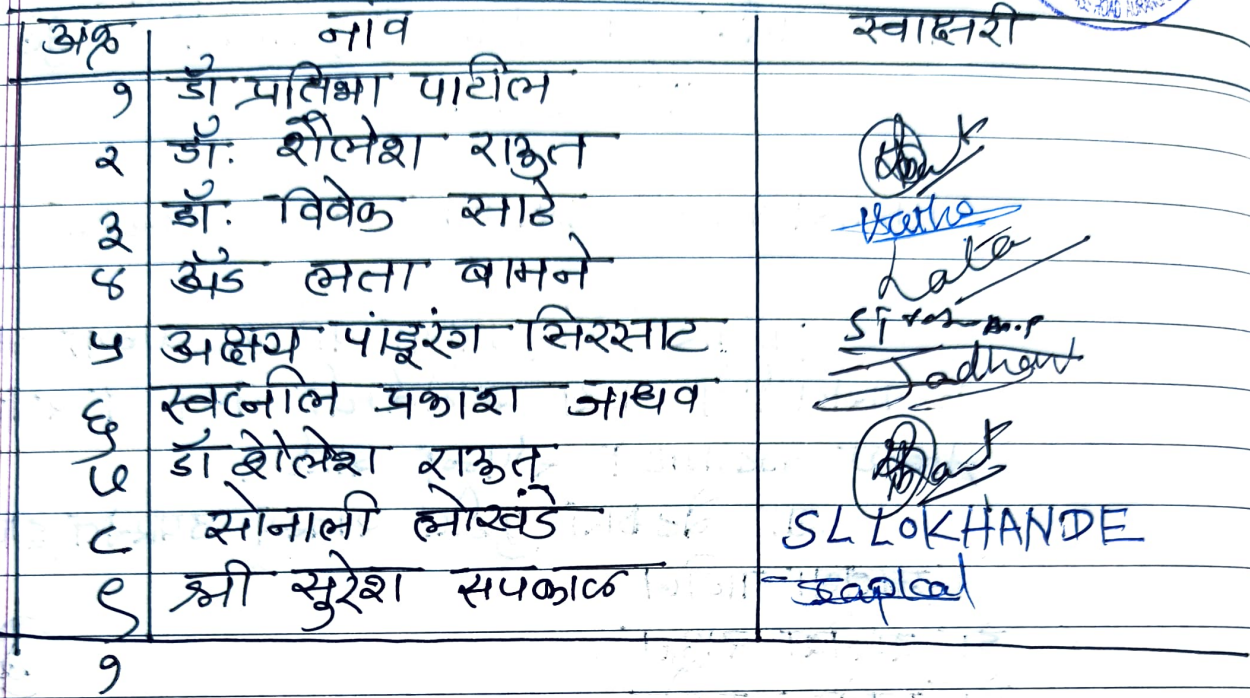 अक्र नाव स्वाक्षरी
१ डॉ प्रतिभा पाटील
२ डॉ. शैलेश राऊत
३ डॉ. विवेक साठे
४ अॅड लता बामने Lata
५ अक्षय पांडूरंग सिरसाट
६ स्वप्नील प्रकाश जाधव Jadhav
७ डॉ शैलेश राऊत
८ सोनाली लोखंडे SLLOKHANDE
९ श्री सुरेश सपकाळ Sapkal
१